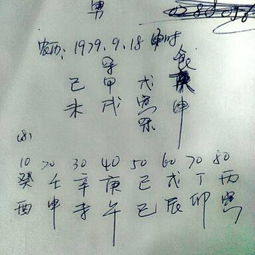 男
农历:1979.9.18 申时
杀 食
己 甲 戊 庚
未 戌 寅 申
(8)
10 20 30 40 50 60 70 80
癸 壬 辛 庚 己 戊 丁 丙
酉 申 未 午 巳 辰 卯 寅